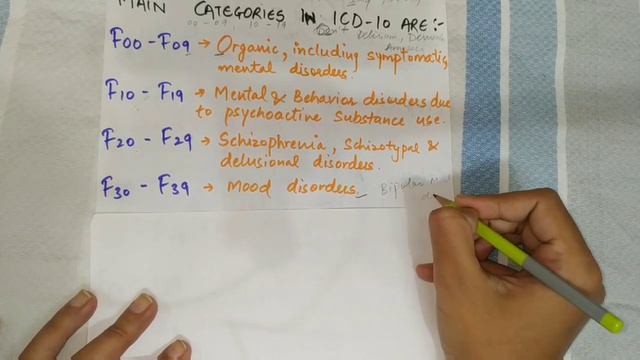 MAIN CATEGORIES IN ICD-10 ARE :-
00 - 09, 10 - 19
Don't Delirium,
F00 - F09 → Organic, including symptomatic,
mental disorders.
F10 - F19 → Mental & Behavior disorders due
to psychoactive Substance use.
F20 - F29 → Schizophrenia, Schizotypal &
delusional disorders.
F30 - F39 → Mood disorders Bipolar